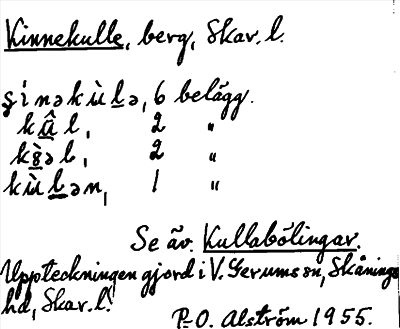 Kinnekulle, berg, Skar. l.
ʂinəkùlə, 6 belägg.
kûl, 2 "
kɞ̀əl, 2 "
kùlən, 1 "
Se äv. Kullabölingar.
Uppteckningen gjord i V. Gerums sn, Skånings
hd, Skar. l.
P-O. Alström 1955.